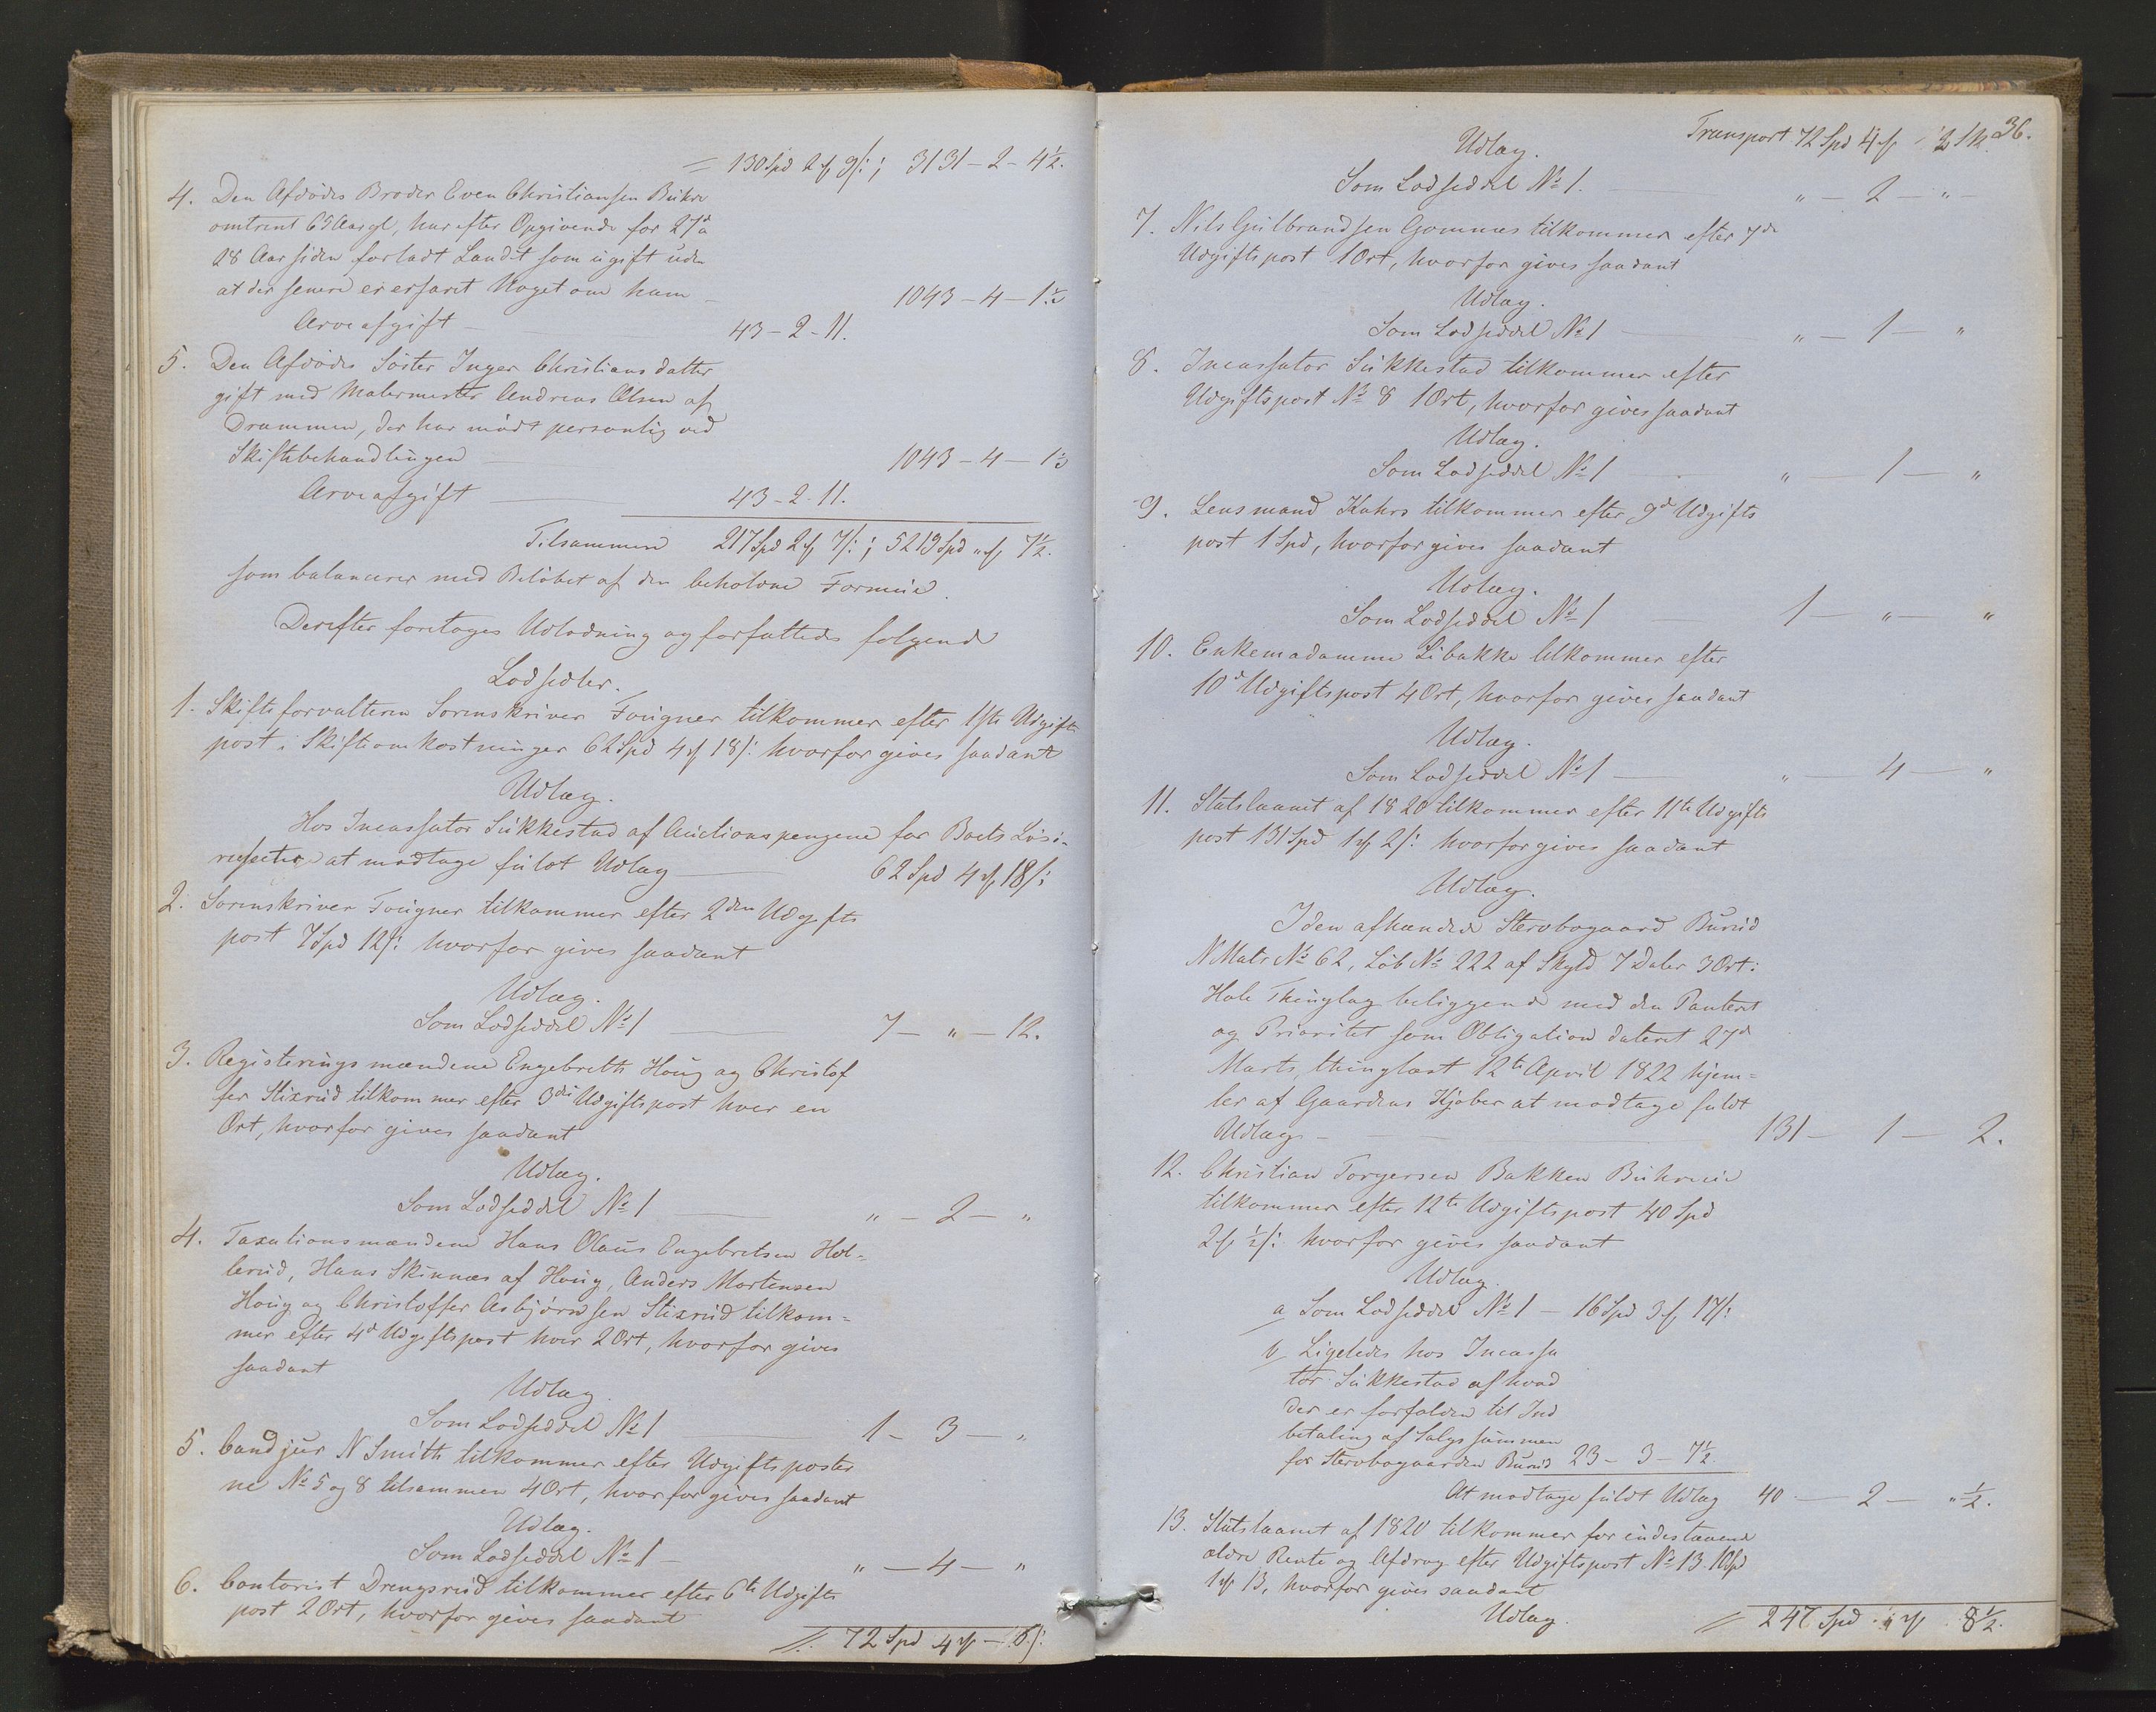 = 130 Spd 2 ₰ 9 /: ; 3131 - 2 - 4½.
4. Den Afdødes Broder Even Christiansen Buhre
omtrent 65 Aar gl, har efter Opgivende for 27 à
28 Aar siden forladt Landet som ugift uden
at der senere er erfaret Noget om ham - 1043 - 4 - 1½
Arveafgift - 43 - 2 - 11.
5. Den Afdødes Söster Inger Christiansdatter
gift med Malermester Andreas Olsen af
Drammen, der har mödt personlig ved
Skiftebehandlingen - 1043 - 4 - 1½
Arveafgift - 43 - 2 - 11.
Tilsammen 217 Spd 2 ₰ 7 /: ; 5219 Spd " ₰ 7½.
som balancerer med Belöbet af den beholdne Formue.
Derefter foretoges Udlodning og forfattedes følgende
Lodsedler.
1. Skifteforvalteren Sorenskriver Fougner tilkommer efter 1ste Udgifts
post i Skifteomkostninger 62 Spd 4 ₰ 18 /: hvorfor gives saadant
Udlæg.
Hos Incassator Sukkestad af Auctionspengene for Boets Lösö-
reeffecter at modtage fuldt Udlæg - 62 Spd 4 ₰ 18 /:
2. Sorenskriver Fougner tilkommer efter 2den Udgifts
post 7 Spd 12 /: hvorfor gives saadant
Udlæg.
Som Lodseddel No 1 - 7 - " - 12.
3. Registeringsmændene Engebreth Houg og Christof
fer Stixrud tilkommer efter 3die Udgiftspost hver en
Ort, hvorfor gives saadant
Udlæg.
Som Lodseddel No 1 - " - 2 - "
4. Taxationsmændene Hans Olaus Engebretsen Hol-
lerud, Hans Skinnes af Houg, Anders Mortensen
Houg og Christoffer Asbjörnsen Stixrud tilkom-
mer efter 4de Udgiftspost hver 2 Ort, hvorfor gives
saadant
Udlæg.
Som Lodseddel No 1 - 1 - 3 - "
5. Cand jur N Smith tilkommer efter Udgiftsposter
ne No 5 og 8 tilsammen 4 Ort, hvorfor gives saadant
Udlæg.
Som Lodseddel No 1 - " - 4 - "
6. Contorist Drengsrud tilkommer efter 6te Udgifts
post 2 Ort, hvorfor gives saadant
72 Spd 4 ₰ - 6 /:
Transport 72 Spd 4 ₰ 36.
Udlæg.
Som Lodseddel No 1. " - 2 - " -
7. Nils Gulbrandsen Gomnæs tilkommer efter 7de
Udgiftspost 1 Ort, hvorfor gives saadant
Udlæg.
Som Lodseddel No 1 - " - 1 - "
8. Incassator Sukkestad tilkommer efter
Udgiftspost No 8 1 Ort, hvorfor gives saadant
Udlæg.
Som Lodseddel No 1 - " - 1 - "
9. Lensmand Kuhrs tilkommer efter 9de Udgifts
post 1 Spd, hvorfor gives saadant
Udlæg.
Som Lodseddel No 1 - 1 - " - "
10. Enkemadamme Libakke tilkommer efter
10de Udgiftspost 4 Ort, hvorfor gives saadant
Udlæg.
Som Lodseddel No 1 - " 4 - "
11. Statslaanet af 1820 tilkommer efter 11te Udgifts
post 131 Spd 1 ₰ 2 /: hvorfor gives saadant
Udlæg.
I den afhændede Stervbogaard Burud
N Matr No 62, Löb No 222 af Skyld 7 Daler 3 Ort i
Hole Thinglag beliggende med den Panteret
og Prioritet som Obligation dateret 27de
Marts, thinglæst 12te April 1822 hjem-
ler af Gaardens Kjøber at modtage fuldt
Udlæg - 131 - 1 - 2.
12. Christian Torgersen Bakken Buhreeie
tilkommer efter 12te Udgiftspost 40 Spd
2 ₰ ½ /: hvorfor gives saadant
Udlæg.
a Som Lodseddel No 1 - 16 Spd 3 ₰ 17 /:
b Ligeledes hos Incassa
tor Sukkestad af hvad
der er forfalden til Ind
betaling af Salgssummen
for Stervbogaarden Burud 23 - 3 - 7½
At modtage fuldt Udlæg 40 - 2 - " ½.
13. Statslaanet af 1820 tilkommer for indestaaende
ældre Rente og Afdrag efter Udgiftspost No 13. 10 Spd
1 ₰ 13, hvorfor gives saadant
Udlæg.
247 Spd 1 ₰ 8½.